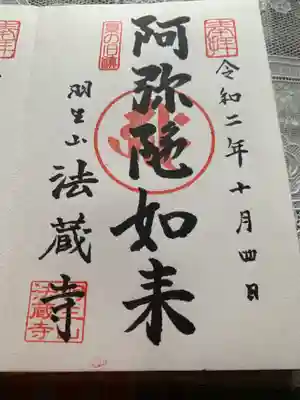 奉拝
令和二年十月四日
阿弥陀如来
羽生山
法蔵寺
羽生山
法蔵寺